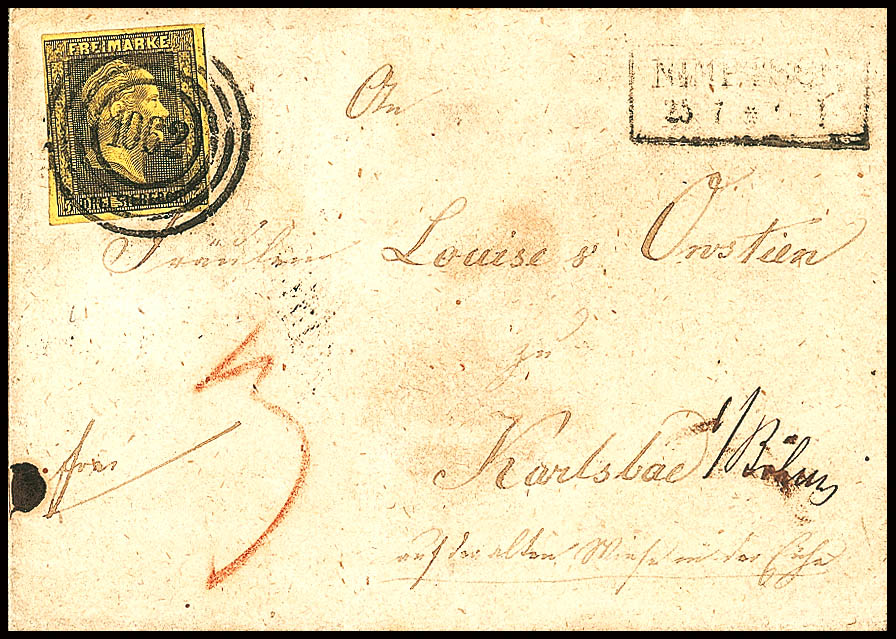 FREIMARKE
1062
DREI SILBERGR.
25 7 * 1
An
Fräulein Louise v Orostien
zu
Karlsbad i/Böhm
frei
3
auf der alten Wiese in der Eiche